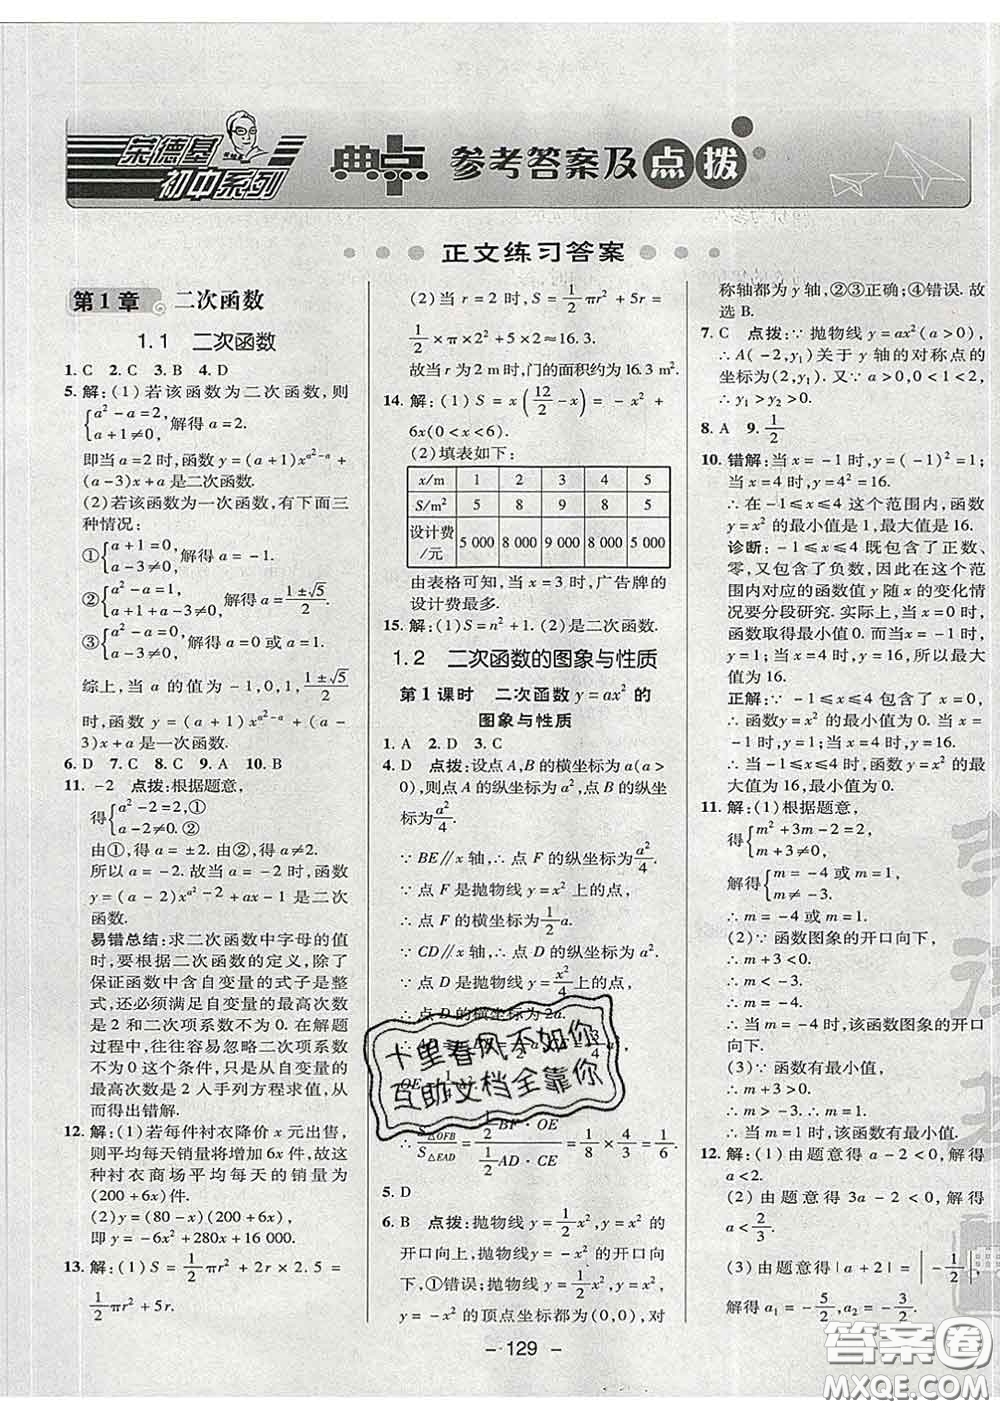 荣德基
初中系列
典点 参考答案及点拨
正文练习答案
第1章 二次函数
1.1 二次函数
1. C 2. C 3. B 4. D
5. 解:(1)若该函数为二次函数,则
{a²-a=2, a+1≠0, 解得 a=2.
即当 a=2 时,函数 y=(a+1)x^(a²-a)+
(a-3)x+a 是二次函数.
(2)若该函数为一次函数,有下面三
种情况:
①{a+1=0, a-3≠0, 解得 a=-1.
②{a²-a=1, a+1+a-3≠0, 解得 a=(1±√5)/2.
③{a²-a=0, a-3≠0, 解得 a=0 或 a=1.
综上,当 a 的值为 -1,0,1,(1±√5)/2
时,函数 y=(a+1)x^(a²-a)+(a-
3)x+a 是一次函数.
6. D 7. C 8. C 9. A 10. B
11. -2 点拨:根据题意,
得{a²-2=2,① a-2≠0.②
由①,得 a=±2. 由②,得 a≠2.
所以 a=-2. 故当 a=-2 时,函数
y=(a-2)x^(a²-2)+ax-1 是二次
函数.
易错总结:求二次函数中字母的值
时,要根据二次函数的定义,除了
保证函数中含自变量的式子是整
式,还必须满足自变量的最高次数
是 2 和二次项系数不为 0. 在解题
过程中,往往容易忽略二次项系数
不为 0 这个条件,只是从自变量的
最高次数是 2 入手列方程求值,从
而得出错解.
12. 解:(1)若每件衬衣降价 x 元出售,
则平均每天销量将增加 6x 件,因此
这种衬衣商场平均每天的销量为
(200+6x)件.
(2)y=(80-x)(200+6x),
即 y=-6x²+280x+16 000.
13. 解:(1)S=1/2πr²+2r×2.5=
1/2πr²+5r.
(2)当 r=2 时,S=1/2πr²+5r=
1/2×π×2²+5×2≈16.3.
故当 r 为 2 m 时,门的面积约为 16.3 m².
14. 解:(1)S=x(12/2-x)=-x²+
6x(0<x<6).
(2)填表如下:
x/m 1 2 3 4 5
S/m² 5 8 9 8 5
设计费/元 5 000 8 000 9 000 8 000 5 000
由表格可知,当 x=3 时,广告牌的
设计费最多.
15. 解:(1)S=n²+1.(2)是二次函数.
1.2 二次函数的图象与性质
第1课时 二次函数 y=ax² 的
图象与性质
1. A 2. D 3. C
4. D 点拨:设点 A,B 的横坐标为 a(a>
0),则点 A 的纵坐标为 a²,点 B 的纵坐
标为 a²/4.
∵BE∥x 轴,∴点 F 的纵坐标为 a²/4.
∵点 F 是抛物线 y=x² 上的点,
∴点 F 的横坐标为 1/2a.
∵CD∥x 轴,∴点 D 的纵坐标为 a².
∵点 D 是抛物线 y=x²/4 上的点,
∴点 D 的横坐标为 2a.
十里春风不如你
互助文档全靠你
∴S△OFB/S△EAD=(1/2BF·OE)/(1/2AD·CE)=1/8×4/3=1/6.
5. D
6. B 点拨:抛物线 y=1/2x²,y=x² 的
开口向上,抛物线 y=-x² 的开口向
下,①错误;抛物线 y=1/2x²,y=x²,
y=-x² 的顶点坐标都为(0,0),对
称轴都为 y 轴,②③正确;④错误.故
选 B.
7. C 点拨:∵抛物线 y=ax²(a>0),
∴A(-2,y₁)关于 y 轴的对称点的
坐标为(2,y₁). 又∵a>0,0<1<2,
∴y₁>y₂>0.
8. A 9. 1/2
10. 错解:当 x=-1 时,y=(-1)²=1;
当 x=4 时,y=4²=16.
∴在 -1≤x≤4 这个范围内,函数
y=x² 的最小值是 1,最大值是 16.
诊断:-1≤x≤4 既包含了正数、
零,又包含了负数,因此在这个范
围内对应的函数值 y 随 x 的变化情
况要分段研究. 实际上,当 x=0 时,
函数取得最小值 0. 而当 x=-1 时,
y=1;当 x=4 时,y=16,所以最大
值为 16.
正解:∵-1≤x≤4 包含了 x=0,
∴函数 y=x² 的最小值为 0. 当 x=
-1 时,y=1;当 x=4 时,y=16.
∴当 -1≤x≤4 时,函数 y=x² 的最
大值为 16,最小值为 0.
11. 解:(1)根据题意,
得{m²+3m-2=2, m+3≠0,
解得{m=-4 或 m=1, m≠-3.
∴m=-4 或 m=1.
(2)∵函数图象的开口向下,
∴m+3<0.
∴m<-3.
∴m=-4.
∴当 m=-4 时,该函数图象的开口
向下.
(3)∵函数有最小值,
∴m+3>0.
∴m>-3.
∴m=1.
∴当 m=1 时,该函数有最小值.
12. 解:(1)由题意得 a-2>0,解得 a>2.
(2)由题意得 3a-2<0,解得
a<2/3.
(3)由题意得|a+2|=|-1/2|,
解得 a₁=-5/2,a₂=-3/2.
典
- 129 -
答案圈
MXQE.COM